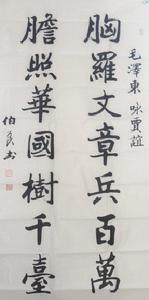 胸羅文章兵百萬
毛澤東 咏賈誼
膽照華國樹千臺